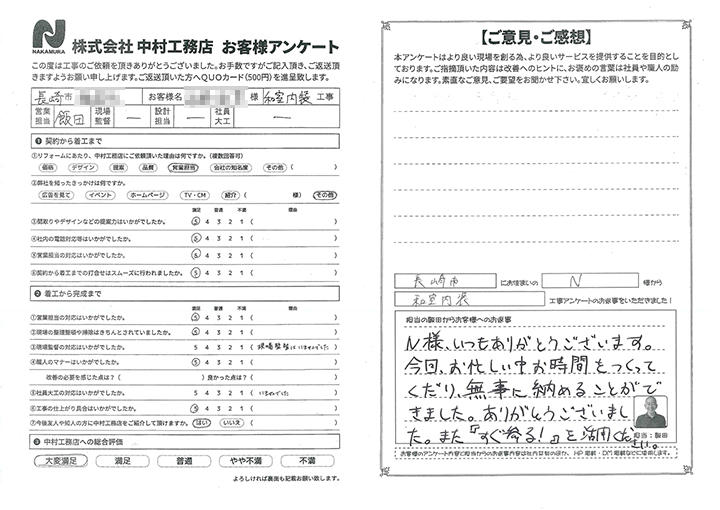 NAKAMURA
株式会社 中村工務店 お客様アンケート
この度は工事のご依頼を頂きありがとうございました。お手数ですがご記入頂き、ご返送頂
きますようお願い申し上げます。ご返送頂いた方へQUOカード(500円)を進呈致します。
長崎市 お客様名 様 和室内装 工事
営業担当 飯田 現場監督 ー 設計担当 ー 社員大工 ー
❶ 契約から着工まで
①リフォームにあたり、中村工務店にご依頼頂いた理由は何ですか。(複数回答可)
価格 デザイン 提案 品質 営業担当 会社の知名度 その他( )
②弊社を知ったきっかけは何ですか。
広告を見て イベント ホームページ TV・CM 紹介( 様) その他
満足 普通 不満 理由
③間取りやデザインなどの提案力はいかがでしたか。 5 4 3 2 1 ( )
④社内の電話対応等はいかがでしたか。 5 4 3 2 1 ( )
⑤営業担当の対応はいかがでしたか。 5 4 3 2 1 ( )
⑥契約から着工までの打合せはスムーズに行われましたか。 5 4 3 2 1 ( )
❷ 着工から完成まで
満足 普通 不満 理由
①営業担当の対応はいかがでしたか。 5 4 3 2 1 ( )
②現場の整理整頓や掃除はきちんとされていましたか。 5 4 3 2 1 ( )
③現場監督の対応はいかがでしたか。 5 4 3 2 1 ( 現場監督はいませんでした )
④職人のマナーはいかがでしたか。 5 4 3 2 1 ( )
改善の必要を感じた点は?( ) 良かった点は?( )
⑤社員大工の対応はいかがでしたか。 5 4 3 2 1 ( いませんでした )
⑥工事の仕上がり具合はいかがでしたか。 5 4 3 2 1 ( )
⑦今後友人や知人の方に中村工務店をご紹介して頂けますか。 はい いいえ ( )
❸ 中村工務店への総合評価
大変満足 満足 普通 やや不満 不満
よろしければ裏面も記載お願い致します。
【ご意見・ご感想】
本アンケートはより良い現場を創る為、より良いサービスを提供することを目的とし
ております。ご指摘頂いた内容は改善へのヒントに、お褒めの言葉は社員や職人の励
みになります。素直なご意見、ご要望をお聞かせ下さい。宜しくお願いします。
長崎市 にお住まいの N 様から
和室内装 工事アンケートのお返事をいただきました!
担当の飯田からお客様へのお返事
N様、いつもありがとうございます。
今回、お忙しい中お時間をつくって
くだり、無事に納めることがで
きました。ありがとうございまし
た。また『すぐ参る!』を活用ください。
担当:飯田